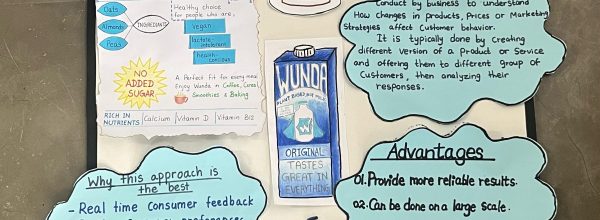 Oats
Almonds
Peas
INGREDIENTS
Healthy choice
for people who are,
vegan
lactose-
intolerent
health-
concious
NO
ADDED
SUGAR
A Perfect fit for every meal
Enjoy Wunda in Coffee, Cereal
Smoothies & Baking
RICH IN
NUTRIENTS
Calcium
Vitamin D
Vitamin B12
WUNDA
PLANT BASED
ORIGINAL
TASTES
GREAT IN
EVERYTHING
Conduct by business to understand
How changes in products, Prices or Marketing
Strategies affect Customer behavior.
It is typically done by creating
different version of a Product or Service
and offering them to different group of
Customers, then analyzing their
responses.
Why this approach is
the best
- Real time Consumer feedback
Advantages
01. Provide more reliable results.
02. Can be done on a large scale.